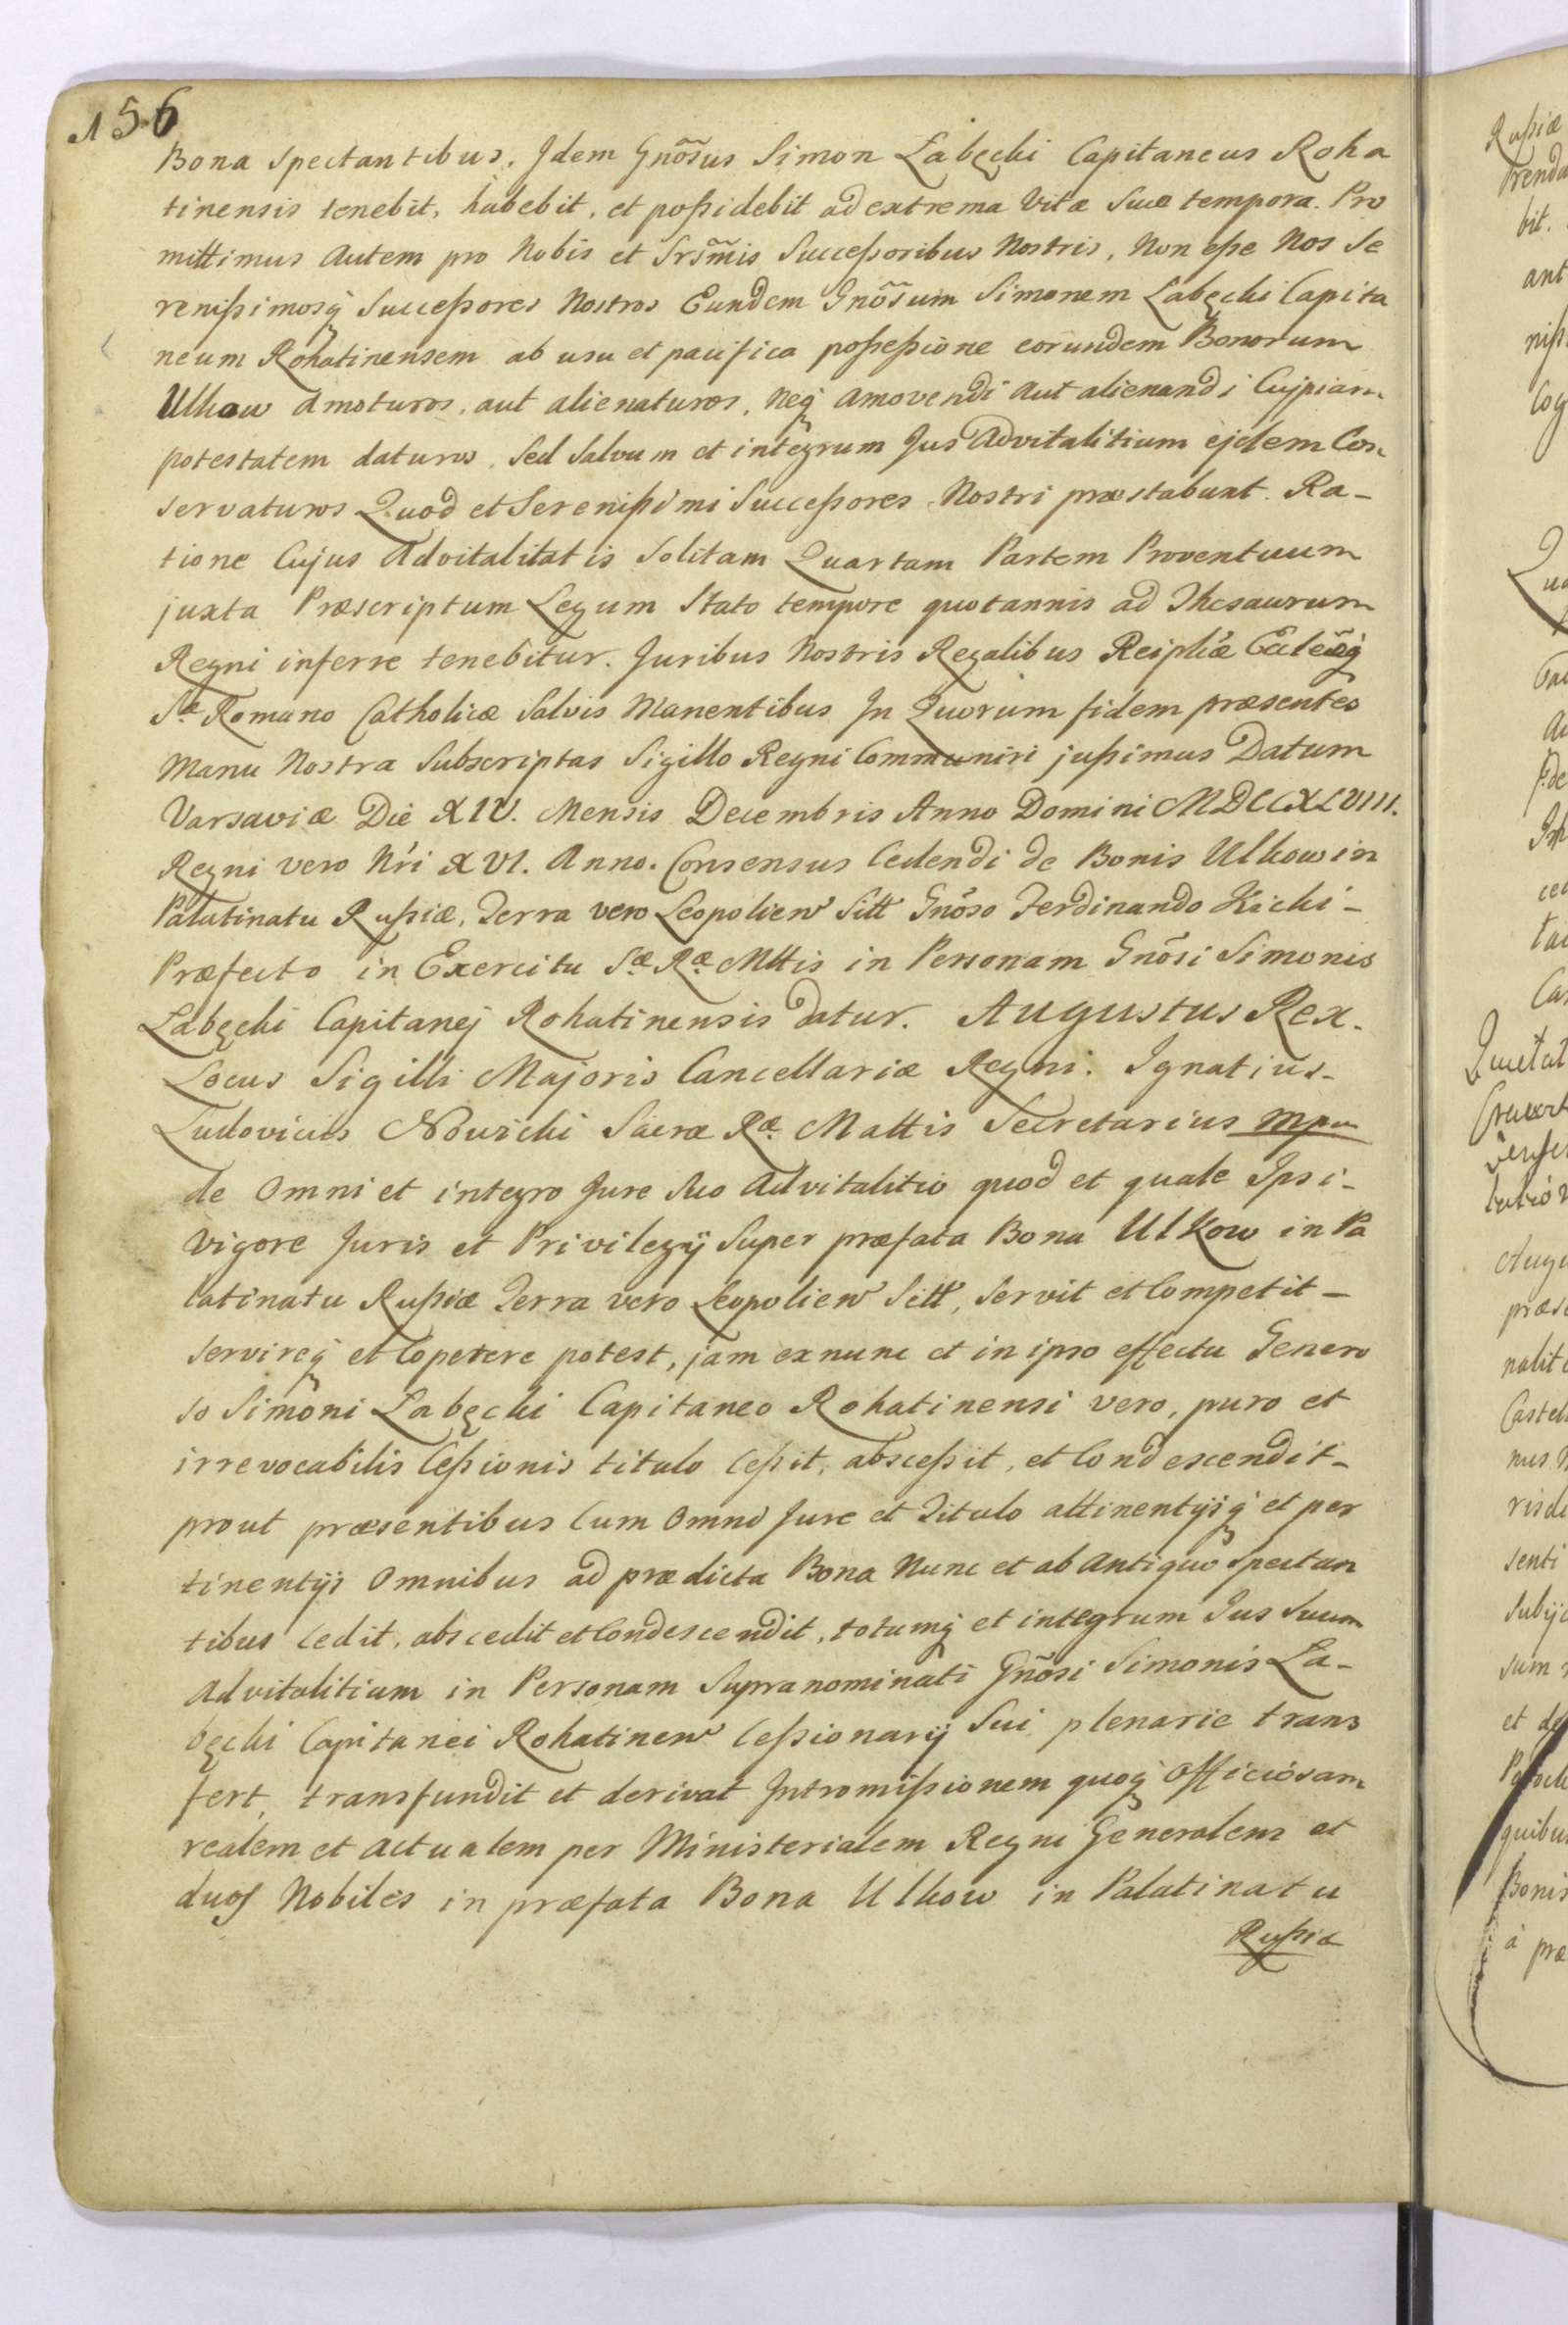 156
Bona Spectantibus, Idem Gnõsus Simon Łabęcki Capitaneus Roha
tinensis tenebit, habebit, et poßidebit ad extrema Vitæ Suæ tempora. Pro
mittimus Autem pro Nobis et Srsm̃is Succeßoribus Nostris, Non eße Nos Se
renißimosq́ Succeßores Nostros Eundem Gnõsum Simonem Łabęcki Capita
neum Rohatinensem ab usu et pacifica poßeßione eorundem Bonorum
Ulkow Amoturos, aut alienaturos, Neq́ Amovendi Aut alienandi Cujpiam
potestatem daturos, Sed Salvum et integrum Jus Advitalitium ejdem Con
servaturos Quod et Serenißimi Succeßores Nostri præstabunt. Ra-
tione Cujus Advitalitatis Solitam Quartam Partem Proventuum
juxta Præscriptum Legum Stato tempore quotannis ad Thesaurum
Regni inferre tenebitur. Juribus Nostris Regalibus Reiplicæ Eccleõq́
Sæ Romano Catholicæ Salvis Manentibus In Quorum fidem præsentes
Manu Nostra Subscriptas Sigillo Regni Communiri jußimus Datum
Varsaviæ Die XIV. Mensis Decembris Anno Domini MDCCXLVIII.
Regni vero Nri XVI. Anno. Consensus Cedendi de Bonis Ulkow in
Palatinatu Rußiæ, Terra vero Leopolien Sitt Gnõso Ferdinando Kicki-
Præfecto in Exercitu Sæ Ræ Mttis in Personam Gnõsi Simonis
Łabęcki Capitanej Rohatinensis datur. Augustus Rex.
Locus Sigilli Majoris Cancellariæ Regni. Ignatius-
Ludovicus Nowicki Sacræ Ræ Mattis Secretarius mpr
de Omni et integro Jure Suo Advitalitio quod et quale Ipsi-
Vigore Juris et Privilegij Super præfata Bona Ulkow in Pa
latinatu Rußiæ Terra vero Leopolien Sitt, Servit et Competit-
Servireq́ et Copetere potest, jam exnunc et in ipso effectu Genero
so Simoni Łabęcki Capitaneo Rohatinensi vero, puro et
irrevocabilis Ceßionis titulo Ceßit, absceßit, et Condescendit-
prout præsentibus Cum Omni Jure et Titulo attinentijsq́ et per
tinentijs Omnibus ad prædicta Bona Nunc et ab Antiquo Spectan
tibus Cedit, abscedit et Condescendit, totumq́ et integrum Jus Suum
Advitalitium in Personam Supranominati Gñosi Simonis Ła-
bęcki Capitanei Rohatinen Ceßionarij Sui plenarie trans
fert, transfundit et derivat Intromißionem quoq́ Officiosam
realem et Actualem per Ministerialem Regni Generalem et
duos Nobiles in præfata Bona Ulkow in Palatinatu
Rußiæ